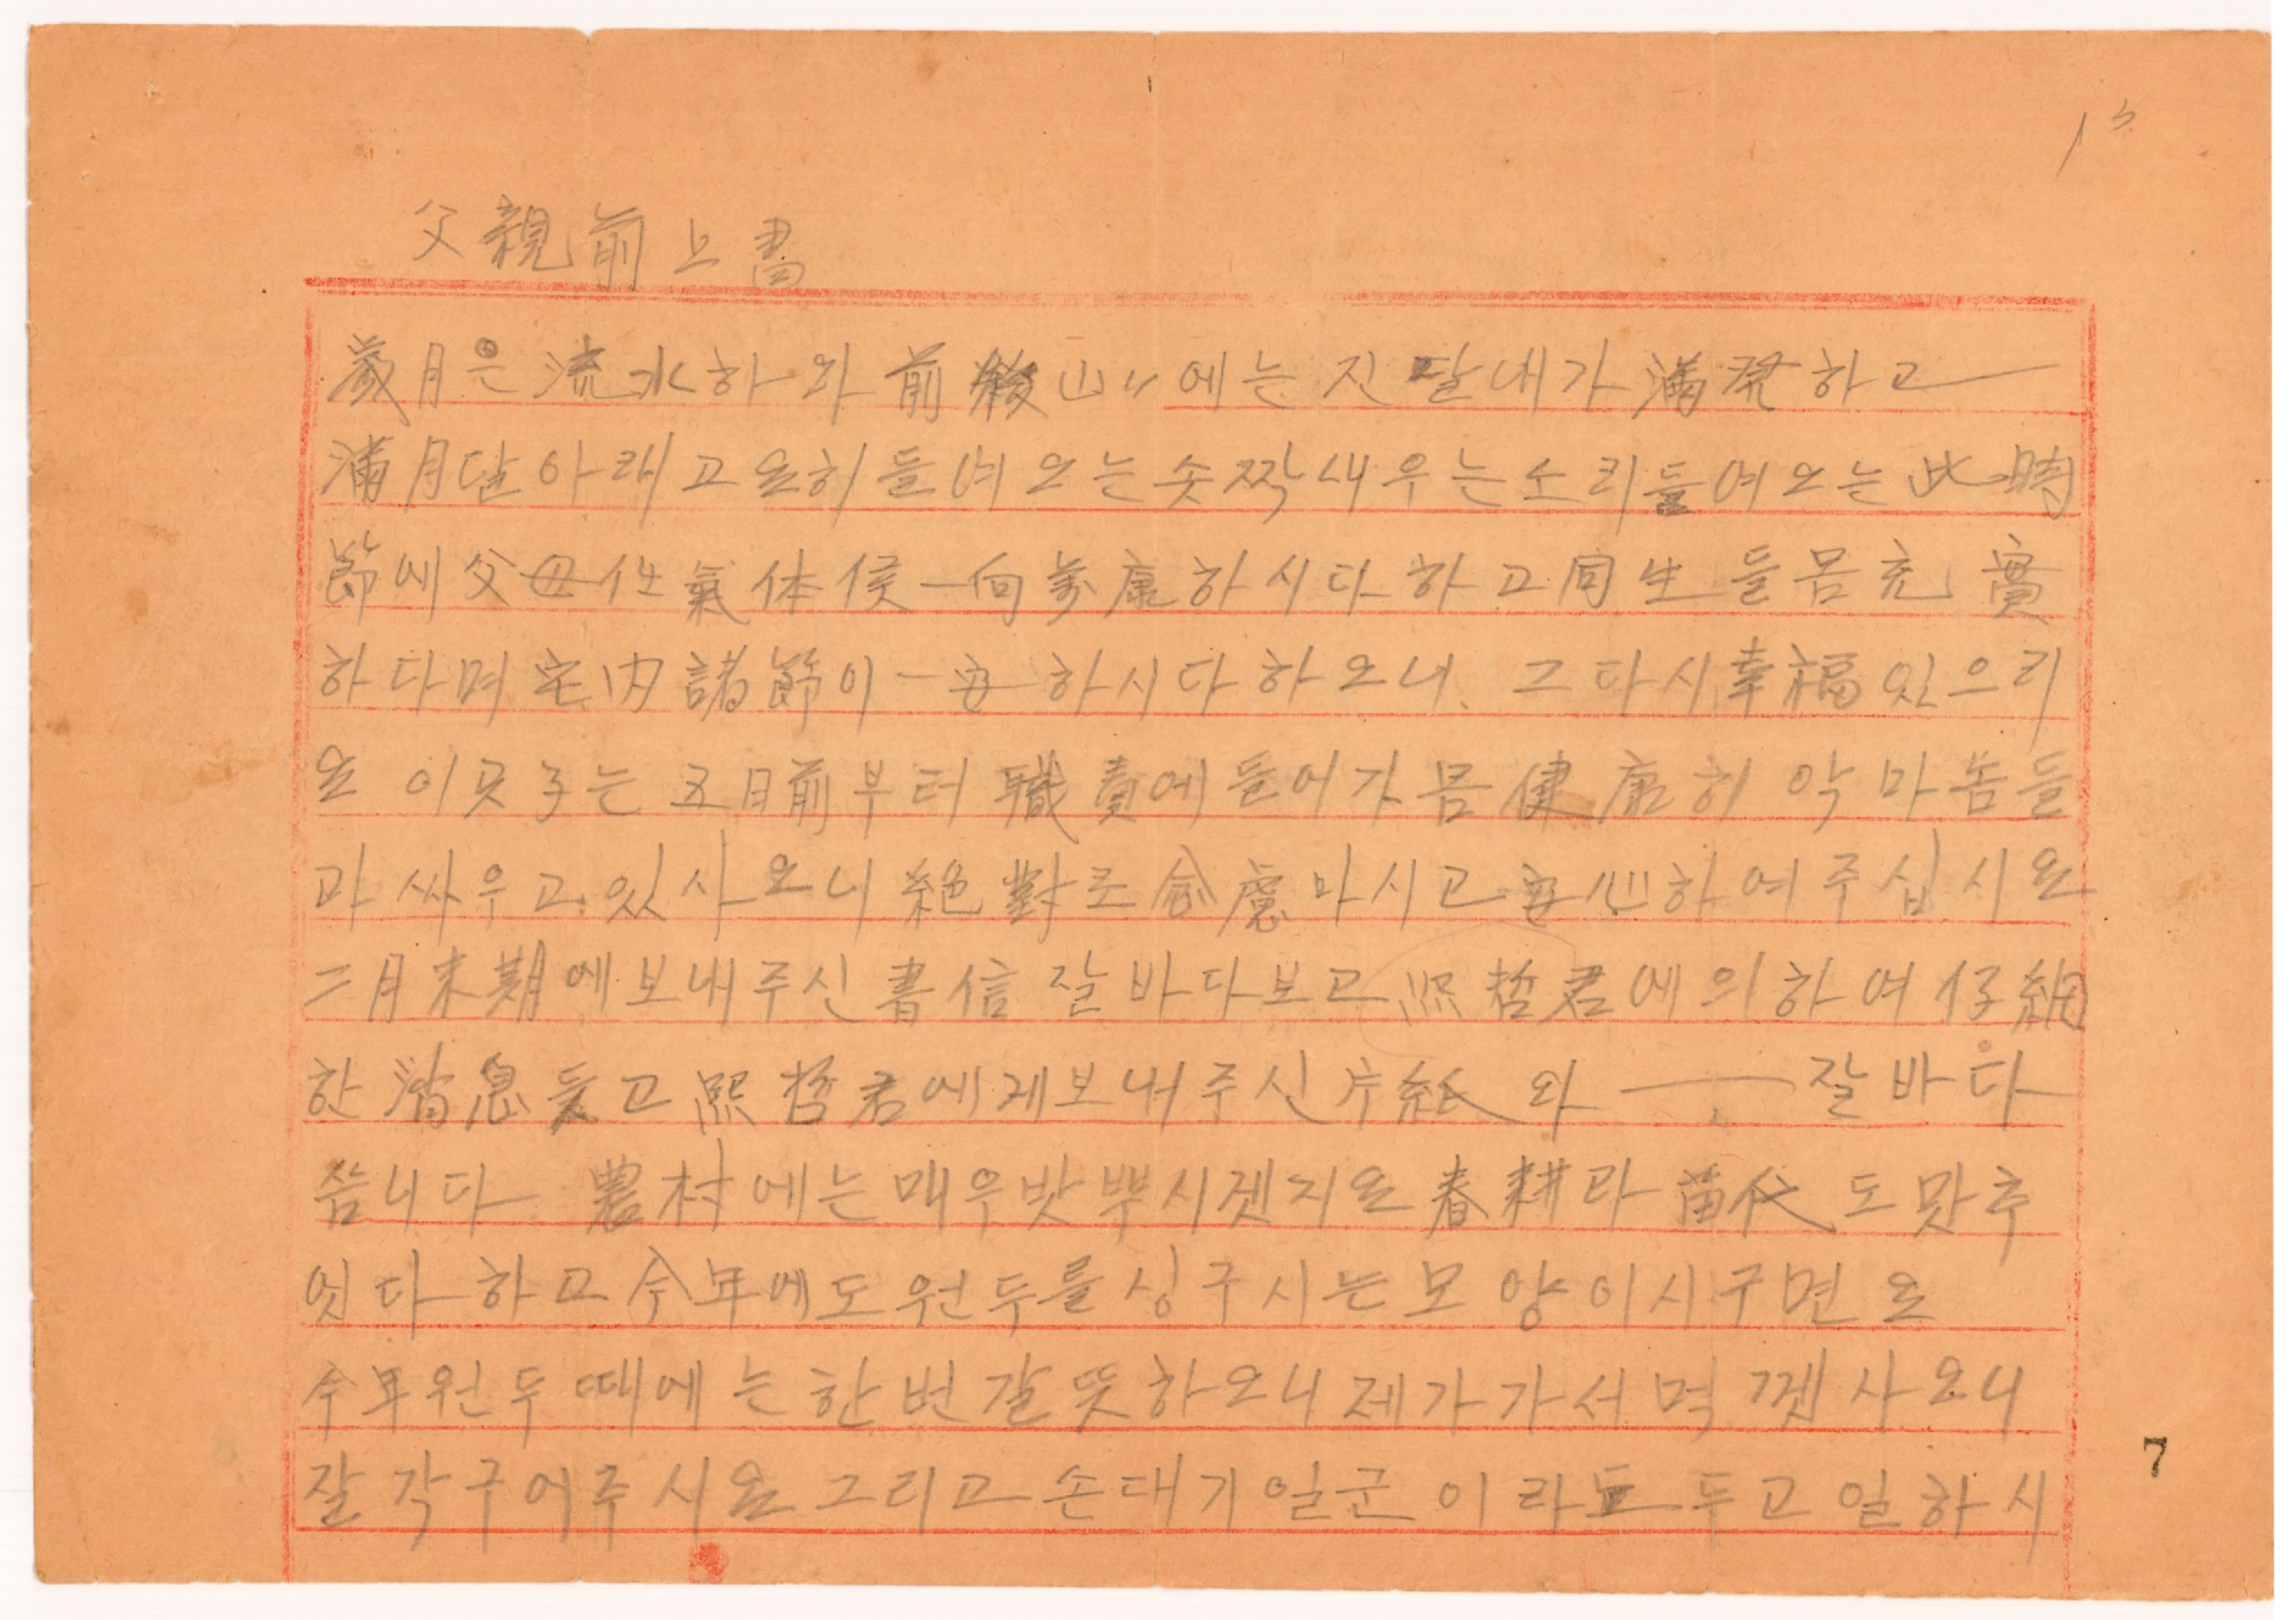 父親前上書
歲月은 流水하와 前後山〃에는 진달내가 滿発하고
滿月달아래 고요히 들여오는 솟짝새우는소리들여오는 此時
節에 父母任 氣体候一向萬康하시다하고 同生들몸充實
하다며 宅內諸節이 一安하시다하오니 그다시幸福있으리
요 이못子는 五日前부터 職責에들어가 몸健康히 악마놈들
과 싸우고있사오니 絶對로 念慮마시고 安心하여주십시요
二月末期에보내주신 書信 잘바다보고 熙哲君에의하여 仔細
한 消息듯고 熙哲君에게보내주신片紙와 잘바다
씀니다 農村에는매우밧뿌시겟지요 春耕라 苗代도맛추
엇다하고 今年에도원두를싱구시는모양이시구면요
今年원두때에는한번갈뜻하오니제가가서먹겟사오니
잘각구어주시요 그리고 손대기일군이라도두고일하시
7